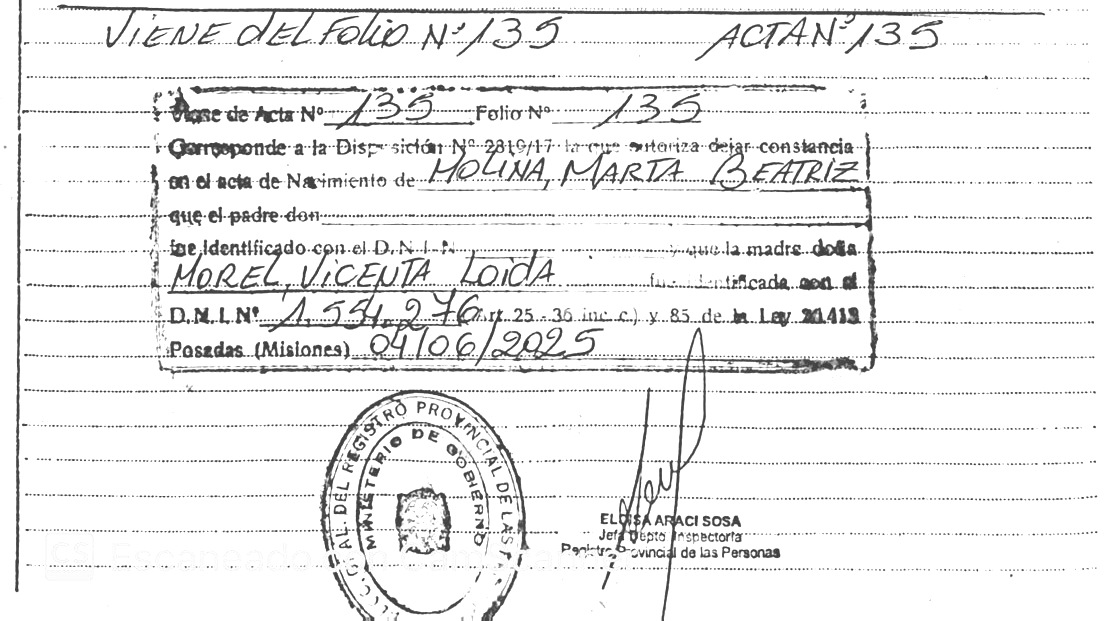 VIENE DEL FOLIO Nº 135 ACTA Nº 135
Viase de Acta Nº 135 Folio Nº 135
Corresponde a la Disposición Nº 2819/17 la que autoriza dejar constancia
en el acta de Nacimiento de MOLINA, MARTA BEATRIZ
que el padre don
fue identificado con el D.N.I.N y que la madre doña
MOREL, VICENTA LOIDA fue identificada con el
D.N.I.Nº 1.551.276 (Art. 25 - 36 inc c.) y 85 de la Ley
Posadas (Misiones) 04/06/2025
GRAL. DEL REGISTRO PROVINCIAL DE LAS
MINISTERIO DE GOBIERNO
ELOISA ARACI SOSA
Jefa Depto Inspectoría
Registro Provincial de las Personas
CS Escaneado con CamScanner